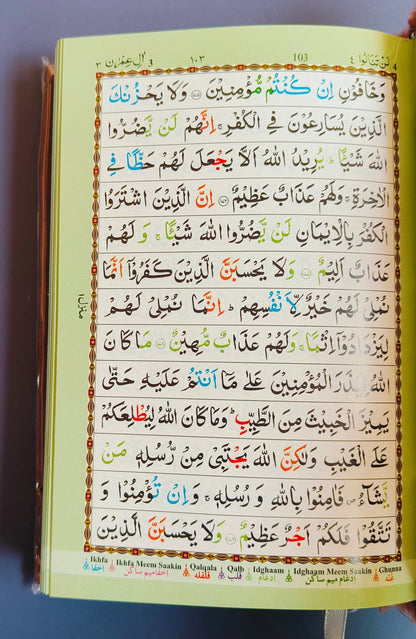 لَنْ تَنَالُوا ٤ 4 103 ١٠٣ اٰلِ عِمْرٰن ٣ 3
وَخَافُوْنِ اِنْ كُنْتُمْ مُّؤْمِنِيْنَ ۝ وَلَا يَحْزُنْكَ
الَّذِيْنَ يُسَارِعُوْنَ فِى الْكُفْرِ ۚ اِنَّهُمْ لَنْ يَّضُرُّوا
اللّٰهَ شَيْـًٔا ؕ يُرِيْدُ اللّٰهُ اَلَّا يَجْعَلَ لَهُمْ حَظًّا فِى
الْاٰخِرَةِ ۚ وَلَهُمْ عَذَابٌ عَظِيْمٌ ۝ اِنَّ الَّذِيْنَ اشْتَرَوُا
الْكُفْرَ بِالْاِيْمَانِ لَنْ يَّضُرُّوا اللّٰهَ شَيْـًٔا ۚ وَلَهُمْ
عَذَابٌ اَلِيْمٌ ۝ وَلَا يَحْسَبَنَّ الَّذِيْنَ كَفَرُوْۤا اَنَّمَا
نُمْلِىْ لَهُمْ خَيْرٌ لِّاَنْفُسِهِمْ ؕ اِنَّمَا نُمْلِىْ لَهُمْ
لِيَزْدَادُوْۤا اِثْمًا ۚ وَلَهُمْ عَذَابٌ مُّهِيْنٌ ۝ مَا كَانَ
اللّٰهُ لِيَذَرَ الْمُؤْمِنِيْنَ عَلٰى مَاۤ اَنْتُمْ عَلَيْهِ حَتّٰى
يَمِيْزَ الْخَبِيْثَ مِنَ الطَّيِّبِ ؕ وَمَا كَانَ اللّٰهُ لِيُطْلِعَكُمْ
عَلَى الْغَيْبِ وَلٰكِنَّ اللّٰهَ يَجْتَبِىْ مِنْ رُّسُلِهٖ مَنْ
يَّشَآءُ ۪ فَاٰمِنُوْا بِاللّٰهِ وَرُسُلِهٖ ۚ وَاِنْ تُؤْمِنُوْا وَ
تَتَّقُوْا فَلَكُمْ اَجْرٌ عَظِيْمٌ ۝ وَلَا يَحْسَبَنَّ الَّذِيْنَ
منزل ١
Ikhfa Ikhfa Meem Saakin Qalqala Qalb Idghaam Idghaam Meem Saakin Ghunna
اِخفا اِخفا میم ساکن قلقلہ قلب ادغام ادغام میم ساکن غنہ